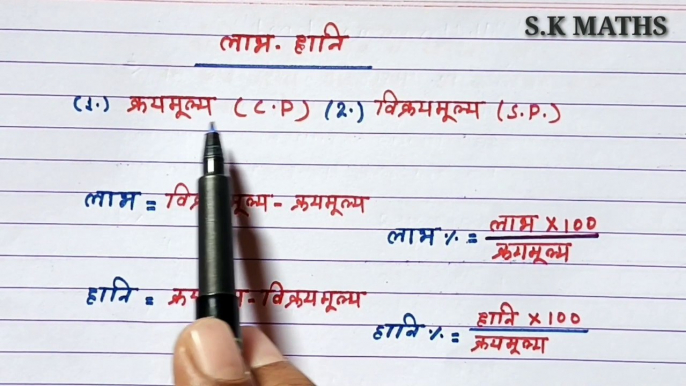 S.K MATHS
लाभ - हानि
(1.) क्रयमूल्य (C.P) (2.) विक्रयमूल्य (S.P.)
लाभ = मूल्य - क्रयमूल्य
लाभ % = लाभ × 100
क्रयमूल्य
हानि = - विक्रयमूल्य
हानि % = हानि × 100
क्रयमूल्य